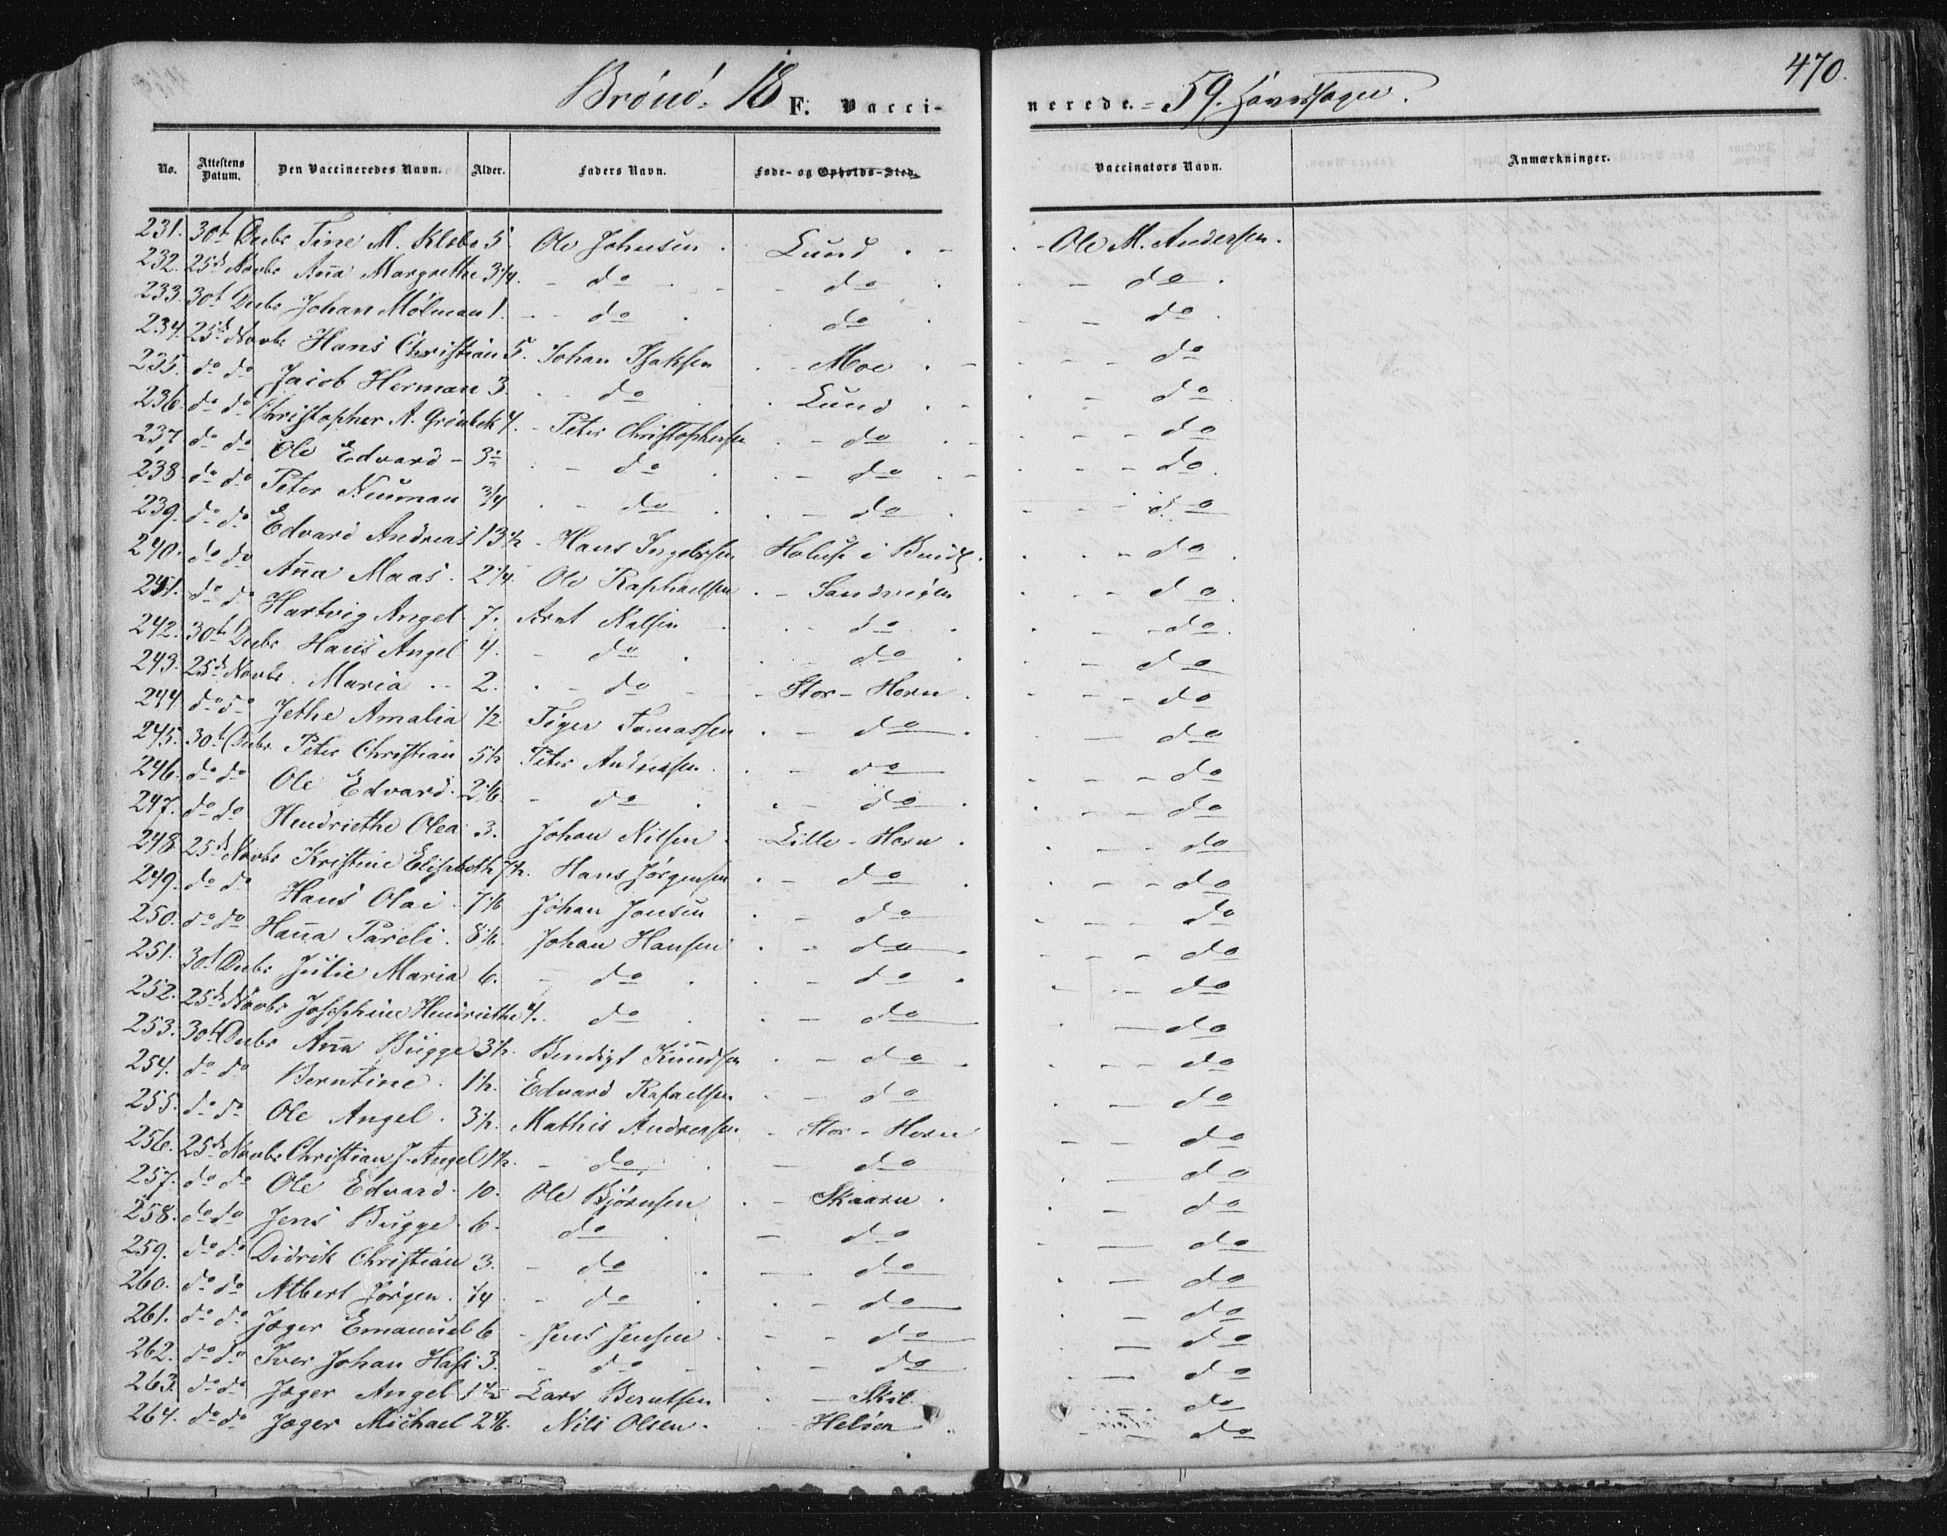 470.
Brönö. 18 F. Vacci- nerede. 59. Hovedsogn.
No. Attestens Datum. Den Vaccineredes Navn. Alder. Faders Navn. Føde- og Opholds-Sted. Vaccinators Navn. Anmærkninger.
231. 30t Decbr Tine M. Klebo 5 Ole Johnsen. Lund. - Ole M. Andersen.
232. 25d Novbr Aña Margrethe 3 1/4. - do - - do - do.
233. 30t Decbr Johan Mølman 1. - do. do. - do.
234. 25d Novbr Hans Christian 5. Johan Isaksen - Moe. - - do
235. do do Jacob Herman 3. - do. Lund. - - do
236. do do Christopher A. Grönbek 4. - Peter Christophersen - do. - - do
237. do do Ole Edvard - 3 - do. - do. - - do.
238. do do Peter Neuman 3/4 - do. - do. - do
239. do do Edvard Andreas 13 1/2 - Hans Ingebrsen Holust i Bindl. - do.
240. do do Aña Maas. 2 1/4. Ole Raphaelsen - Sandvigen - do.
241. do do Hartvig Angel. 7. Arnt Nilsen. - do. - do.
242. 30t Decbr Hans Angel 4. - do. - do. - do
243. 25d Novbr. Maria - - 2. - do - - Stor-Horn. - do
244. do do Jethe Amalia 1/2. Tiger Tomassen. - do. - do
245. 30t Decbr Peter Christian 5 1/2 Peter Andersen. - do - do
246. do do Ole Edvard. 2 1/6. - do. - do. - do
247. do do Hendriethe Olea 3. Johan Nilsen. Lille-Horn. - do
248. 25d Novbr Kristine Elisabeth 7 1/2. Hans Jørgensen. - do. - do
249. do do Hans Olai. 7 1/6 Johan Jansen. - do do
250. do do Haña Pareli. 8 1/6. Johan Hansen. - do. - do
251. 30t Decbr Julie Maria 6. - do. - do. - do
252. 25d Novbr Josephine Hendriethe 4. do. - do - do
253. 30t Decbr Aña Bugge 3 1/2. Bendigt Knudsen. - do. - do
254. do do Berntine. 1 1/2. Edvard Rafaelsen. - do - do
255. do do Ole Angel. 3 1/2. Mathis Andreasen - Stor-Horn - do
256. 25d Novbr Christian J. Angel 1 1/2. - do. - do - do
257. do do Ole Edvard. 10. Ole Bjørnsen. - Skaarn. - do
258. do do Jens Bugge. 6. do. - do - do
259. do do Didrik Christian 3. - do. - do - do
260. do do Albert Jørgen. 1/4 - do. - do - do
261. do do Jæger Emanuel 6 - Jens Jensen. - do - do
262. do do Iver Johan Hass 3. - do - - do - do
263. do do Jæger Angel 1 Lars Berntsen. - Skil. - do
264. do do Jæger Michael 2 Nils Olsen. - Helöen. do